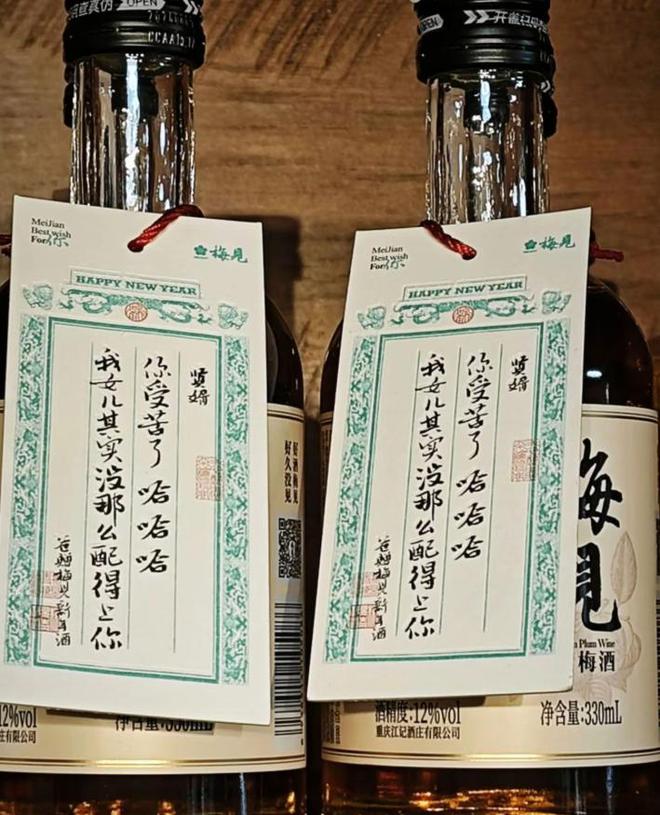 OPEN
OPEN
MeiJian
Best wish
For你
梅見
HAPPY NEW YEAR
贤婿
你受苦了 哈哈哈
我女儿其实没那么配得上你
爸赠梅见新年酒
好酒梅见
好久没见
12%vol
庄有限公司
净含量:330mL
MeiJian
Best wish
For你
梅見
HAPPY NEW YEAR
贤婿
你受苦了 哈哈哈
我女儿其实没那么配得上你
爸赠梅见新年酒
梅見
Plum Wine
梅酒
酒精度:12%vol
净含量:330mL
重庆江记酒庄有限公司